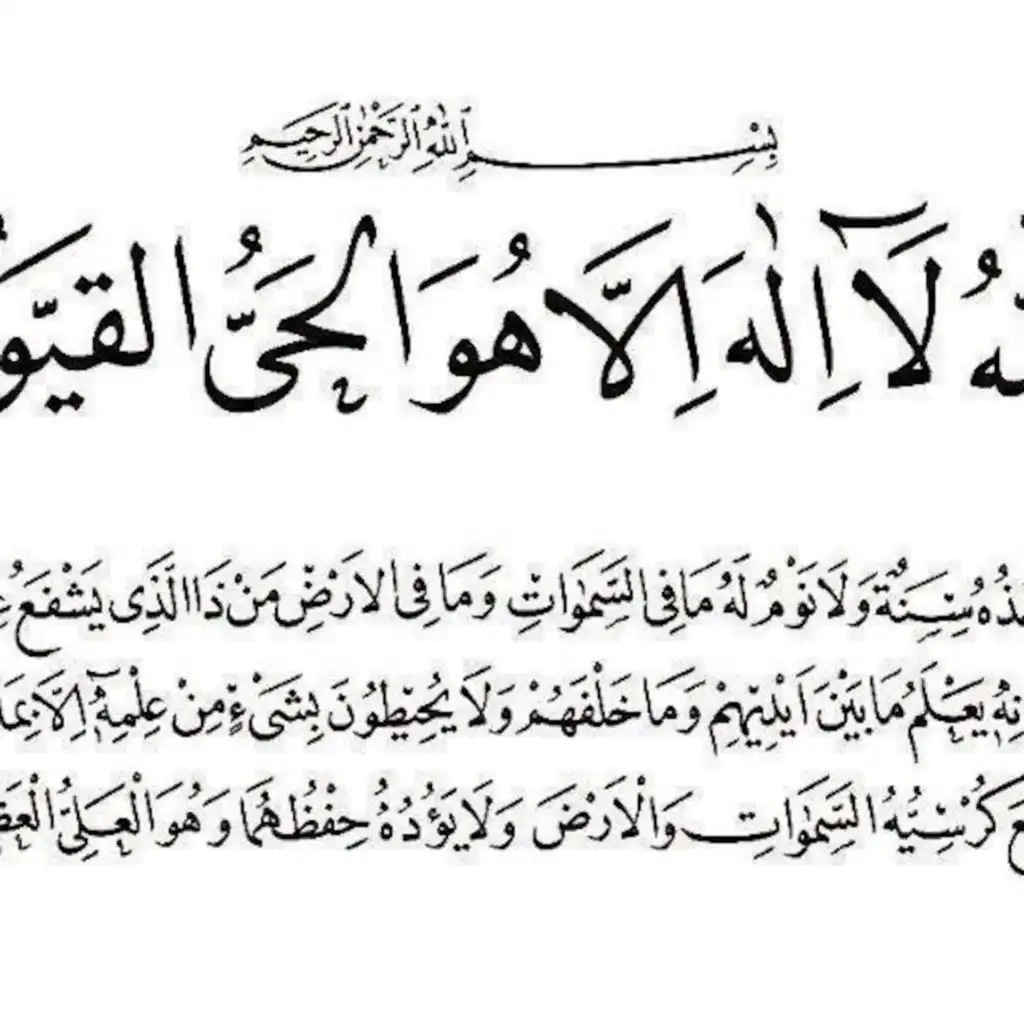 بِسْمِ اللّٰهِ الرَّحْمٰنِ الرَّحِيمِ
لَآ اِلٰهَ اِلَّا هُوَ الْحَىُّ
سِنَةٌ وَلَا نَوْمٌ لَهُ مَا فِى السَّمٰوَاتِ وَمَا فِى الْاَرْضِ مَنْ ذَا الَّذِى يَشْفَعُ
يَعْلَمُ مَا بَيْنَ اَيْدِيهِمْ وَمَا خَلْفَهُمْ وَلَا يُحِيطُونَ بِشَىْءٍ مِنْ عِلْمِهٖٓ اِلَّا بِمَا
كُرْسِيُّهُ السَّمٰوَاتِ وَالْاَرْضَ وَلَا يَؤُدُهُ حِفْظُهُمَا وَهُوَ الْعَلِىُّ